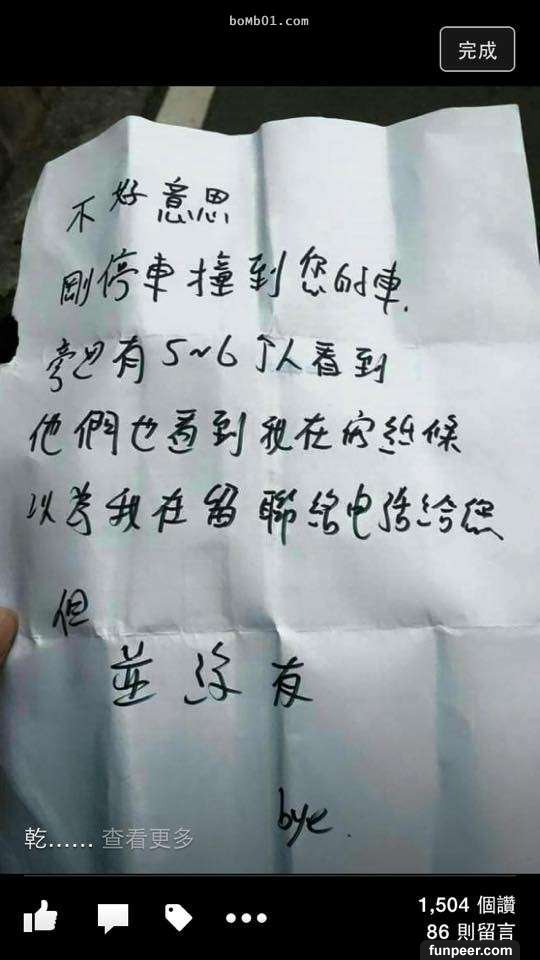 boMb01.com
完成
不好意思
剛停車撞到您的車.
旁边有5~6个人看到
他們也看到我在寫紙條
以為我在留聯絡电話給您
但
並沒有
bye.
乾...... 查看更多
1,504 個讚
86 則留言
funpeer.com